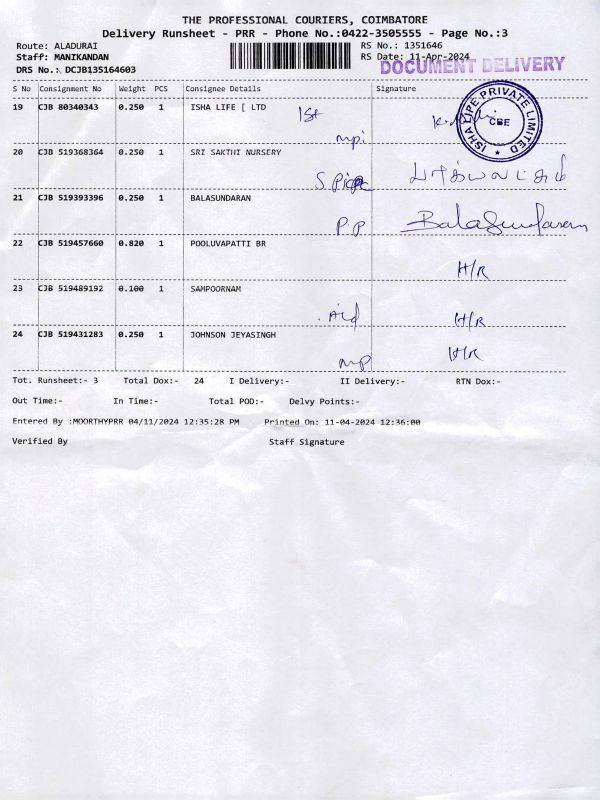 THE PROFESSIONAL COURIERS, COIMBATORE
Delivery Runsheet - PRR - Phone No.:0422-3505555 - Page No.:3
Route: ALADURAI RS No.: 1351646
Staff: MANIKANDAN RS Date: 11-Apr-2024
DOCUMENT DELIVERY
DRS No.: DCJB135164603
S No Consignment No Weight PCS Consignee Details Signature
19 CJB 80340343 0.250 1 ISHA LIFE [ LTD 1st
ISHA LIFE PRIVATE LIMITED
CBE
mpi
20 CJB 519368364 0.250 1 SRI SAKTHI NURSERY
21 CJB 519393396 0.250 1 BALASUNDARAN
P.P Balasundaram
22 CJB 519457660 0.820 1 POOLUVAPATTI BR
H/R
23 CJB 519489192 0.100 1 SAMPOORNAM
H/R
24 CJB 519431283 0.250 1 JOHNSON JEYASINGH
mp H/R
Tot. Runsheet:- 3 Total Dox:- 24 I Delivery:- II Delivery:- RTN Dox:-
Out Time:- In Time:- Total POD:- Delvy Points:-
Entered By :MOORTHYPRR 04/11/2024 12:35:28 PM Printed On: 11-04-2024 12:36:00
Verified By Staff Signature